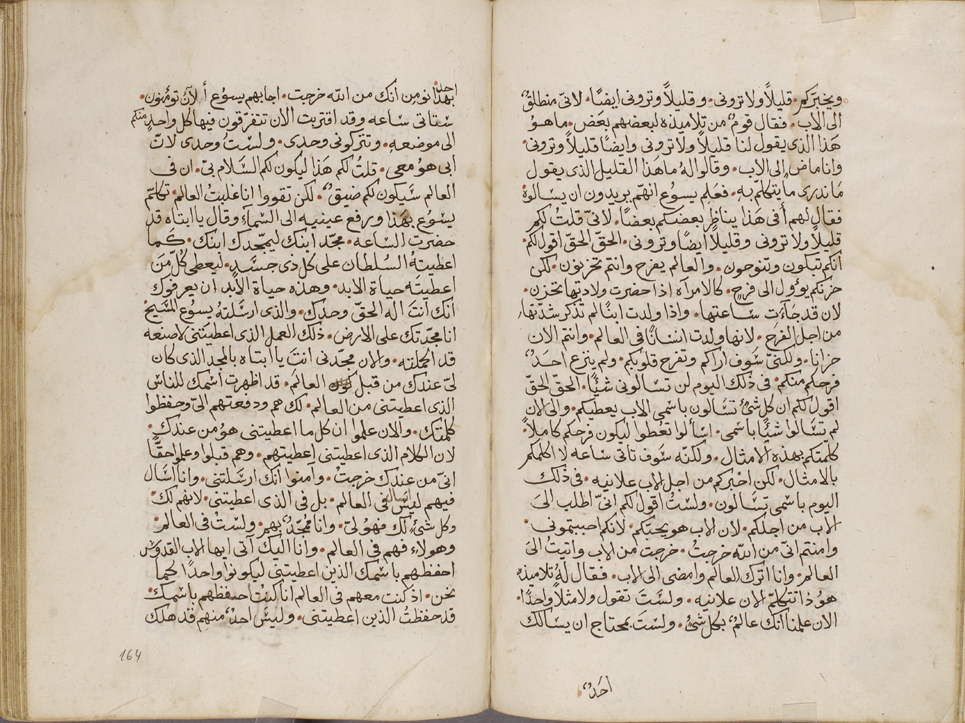 ويخبركم. قليلاً ولا تروني. وقليلاً وتروني ايضًا. لاني منطلقٌ
الى الاب. فقال قومٌ من تلاميذه لبعضهم بعض. ما هو
هذا الذي يقول لنا قليلاً ولا تروني وايضًا قليلاً وتروني.
وانا ماضٍ الى الاب. وقالوا له ما هذا القليل الذي يقول
ما ندري ما يتكلم به. فعلم يسوع انهم يريدون ان يسالوه
فقال لهم أفي هذا يناظر بعضكم بعضًا. لاني قلتُ لكم
قليلاً ولا تروني وقليلاً ايضًا وتروني. الحق الحق اقول لكم.
انكم تبكون وتنوحون. والعالم يفرح وانتم تحزنون. لكن
حزنكم يوؤل الى فرح. كالامرآه اذا حضرت ولادتها تحزن.
لان قد جآءت ساعتها. واذا ولدت ابنًا لم تذكر شدتها
من اجل الفرح. لانها ولدت انسانًا في العالم. وانتم الان
حزانا. ولكني سوف اراكم وتفرح قلوبكم. ولم ينزع احدٌ
فرحكم منكم. في ذلك اليوم لن تسالوني شيًا. الحق الحق
اقول لكم ان كل شيءٍ تسالون باسمي الاب يعطيكم. والى الان
لم تسالوا شيًا باسمي. اسالوا تعطوا ليكون فرحكم كاملاً.
كلمتكم بهذه الامثال. ولكنه سوف تاتي ساعه لا اكلمكم
بالامثال. لكن اخبركم من اجل الاب علانيه. في ذلك
اليوم باسمي تسالون. ولستُ اقول لكم اني اطلب الى
الاب من اجلكم. لان الاب هو يحبكم. لانكم احببتموني.
وامنتم اني من الله خرجتُ. خرجت من الاب واتيتُ الى
العالم. وانا اترك العالم وامضي الى الاب. فقال له تلاميذه
هو ذا تتكلم الان علانيه. ولستَ تقول ولا مثلاً واحدًا.
الان علمنا انك عالمٌ بكل شيءٍ. ولست بمحتاج ان يسالك
احدٌ
احدٌ
بهذا نومن انك من الله خرجت. اجابهم يسوع أ لآن تومنون.
ستاتي ساعه وقد اقتربت الان تتفرقون فيها كل واحدٍ منكم
الى موضعه. وتتركوني وحدي. ولستُ وحدي لان
ابي هو معي. قلتُ لكم هذا ليكون لكم السلام بي. ان في
العالم سيكون لكم ضيقٌ. لكن تقووا انا غلبتُ العالم. تكلم
يسوع بهذا ورفع عينيه الى السمآء وقال يا ابتاه قد
حضرت الساعه. مجد ابنك ليمجدك ابنك. كما
اعطيته السلطان على كل ذي جسدٍ. ليعطي كل من
اعطيته حياة الابد. وهذه حياة الابد ان يعرفوك
انك انت اله الحق وحدك. والذي ارسلته يسوع المسيح
انا مجدتك على الارض. ذلك العمل الذي اعطيتني لاصنعه
قد اكملته. والان مجدني انت يا ابتاه بالمجد الذي كان
لي عندك من قبل كون العالم. قد اظهرت اسمك للناس
الذي اعطيتني من العالم. لك هم ودفعتهم الي وحفظوا
كلمتك. والان علموا ان كل ما اعطيتني هو من عندك.
لان الكلام الذي اعطيتني اعطيتهم. وهم قبلوا وعلموا حقًا
اني من عندك خرجتُ. وامنوا انك ارسلتني. وانا اسال
فيهم ليس اسال في العالم. بل في الذي اعطيتني. لانهم لك
وكل شيءٍ لك فهو لي. وانا ممجدٌ بهم. ولست في العالم.
وهولاء فهم في العالم. وانا اليك آتي ايها الاب القدوس
احفظهم باسمك الذين اعطيتني ليكونوا واحدًا كما
نحن. اذ كنت معهم في العالم انا كنتُ احفظهم باسمك.
قد حفظتُ الذين اعطيتني. وليس احدٌ منهم قد هلك
164